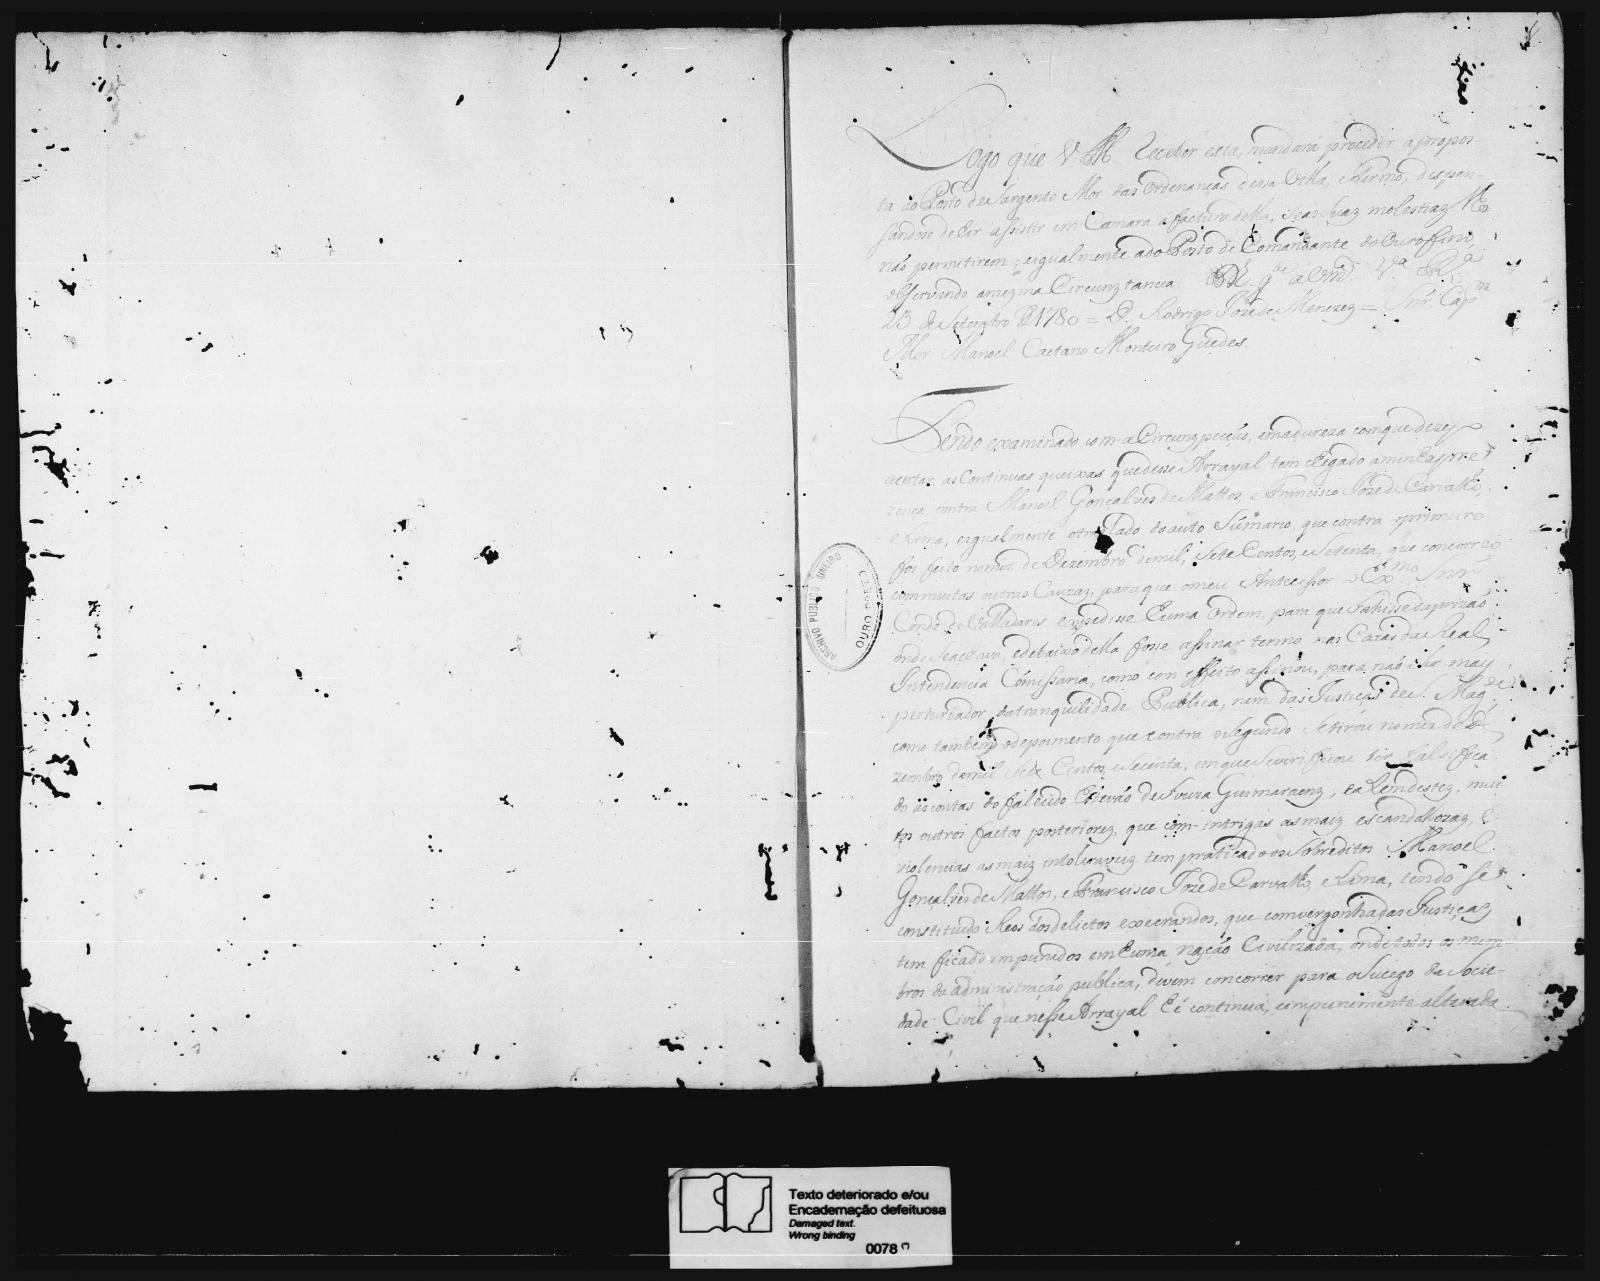 Logo que V M. Receber esta, mandará proceder a propos
ta do Posto de Sargento Mor das Ordenanças dessa Villa, e termo, dispen-
sandose de hir assistir em Camara á factura della, se as suas molestias lho
naõ permitirem; e igualmente a do Posto de Comandante do Ouro fino,
observando a mezma Circunztancia. D.s g.e a Vm.ce V.a R.a
23 de Setembro D 1780 = D. Rodrigo Joze de Menezes = Snr. Cap.m
Mor Manoel Caetano Monteiro Guedes.
Tendo examinado com a Circunzpecçaõ, e madureza com que dezejo
acertar as Continuas queixas que desse Arrayal tem chegado a minha pre
zença contra Manoel Gonçalves de Mattos, e Francisco Joze de Carvalho,
e Lima, e igualmente o traslado do auto Sumario, que contra o primeiro
foi feito no mez de Dezembro de mil, Sete Centos, e Setenta, que concorreo
com muitas outras Cauzas, para que o meu Antecessor o Ex.mo Snr
Conde de Valladares expedisse huma Ordem, para que Sahisse da prizaõ
onde se achava, e debaixo della fosse assinar termo nas Cazas da Real
Intendencia Cómissaria, como com effeito assinou, para naõ Ser mais
perturbador da tranquilidade Publica, nem das Justiças de S. Mag.de
como tambem o depoimento que contra o Segundo Se tirou no mez de De
zembro de mil Sete Centos, e Secenta, em que Se virificou ter falsifica
do as contas do falecido Estevaõ de Souza Guimaraens, e a hem destes, mui
tos outros factos posteriores, que com intrigas as mais escandalozas, e
violencias as mais intoleraveis tem praticado os Sobreditos Manoel
Gonçalves de Mattos, e Francisco Joze de Carvalho, e Lima, tendo se
constituido Reos dos delictos execrandos, que com vergonha das Justiças
tem ficado impunidos em huma naçaõ Civilizada, onde todos os mem
bros da administraçaõ publica, devem concorrer para o Sucego da Socie-
dade Civil que nesse Arrayal hé continua, e impunimente alterada
ARCHIVO PUBLICO MINEIRO
OURO PRETO
Texto deteriorado e/ou
Encadernação defeituosa
Damaged text.
Wrong binding
0078